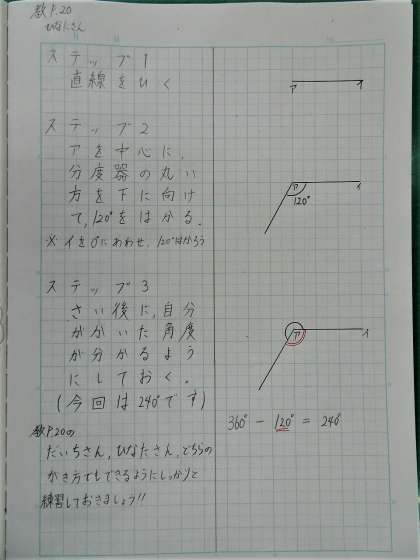 教P.20
ひなたさん
ステップ1
直線をひく
ア イ
ステップ2
アを中心に、
分度器の丸い
方を下に向け
て、120°をはかる。
※イを0°にあわせ、120°はかろう
ア イ
120°
ステップ3
さい後に、自分
がかいた角度
が分かるよう
にしておく。
(今回は240°です)
ア イ
360° - 120° = 240°
教P.20の
だいちさん、ひなたさん、どちらの
かき方でもできるようにしっかりと
練習しておきましょう!!